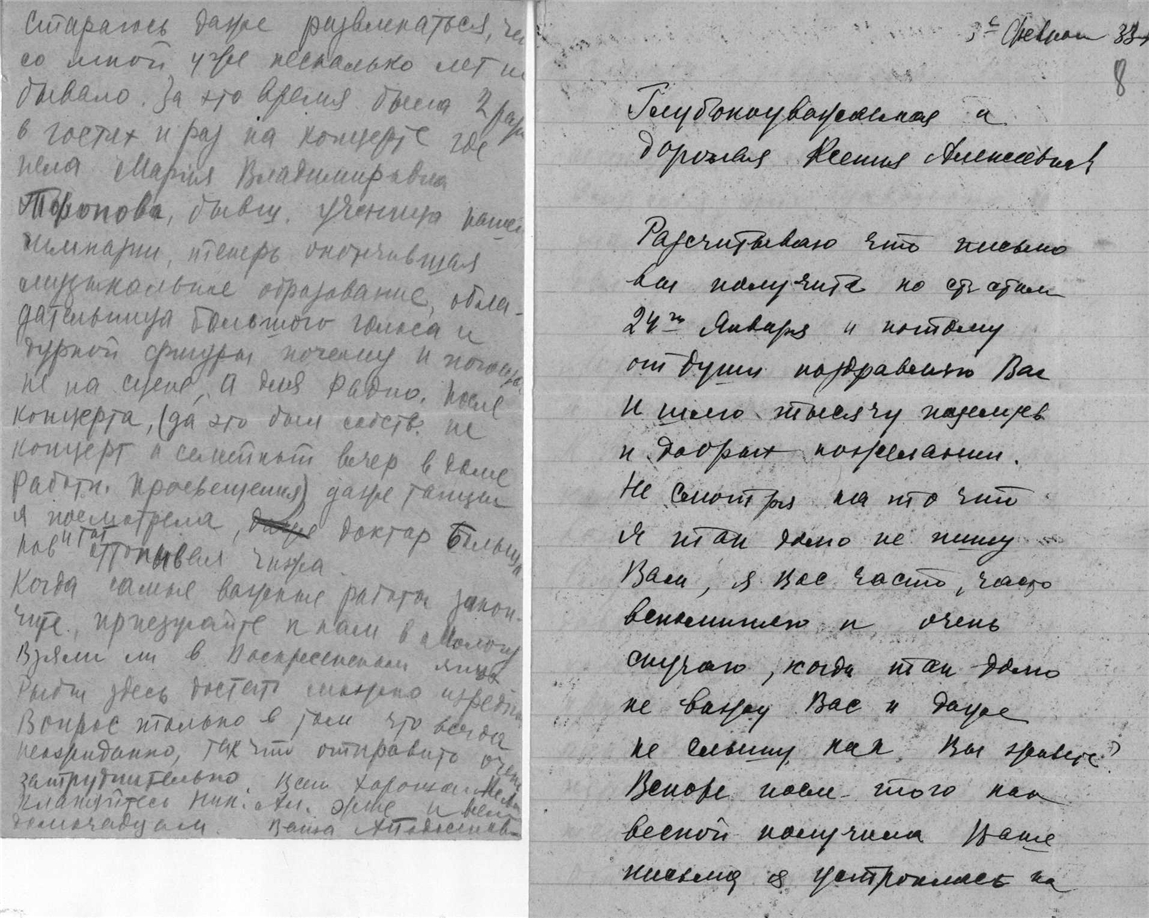 стараюсь даже развлекаться, чего
со мной уже несколько лет не
бывало. За это время была 2 раза
в гостях и раз на концерте где
пела Мария Владимировна
Торопова, бывш. ученица нашей
гимназии, теперь окончившая
музыкальное образование, обла-
дательница большого голоса и
дурной фигуры почему и поет
не на сцене, а для радио. После
концерта, (да это был собств. не
концерт а семейный вечер в доме
работн. просвещения) даже танцы
я посмотрела, доктор
и там
Когда самые важные работы закон-
чите, приезжайте к нам в Мологу
Взяли ли в Воскресенском
Рыбы здесь достать можно изредка
Вопрос только в том что всегда
неожиданно, так что отправить очень
затруднительно. Всего хорошего
Кланяйтесь Ник. Ал. Эме и всем
домочадцам. Ваша
3е Февраля 33
8
Глубокоуважаемая и
дорогая Ксения Алексеевна
Расчитываю что письмо
вы получите по ст. стилю
24го Января и потому
от души поздравляю Вас
и шлю тысячу поцелуев
и добрых пожеланий.
Не смотря на то что
я так долго не пишу
Вам, я Вас часто, часто
вспоминаю и очень
скучаю, когда так долго
не вижу Вас и даже
не слышу как Вы живете?
Вскоре после того как
весной получила Ваше
письмо я устроилась на